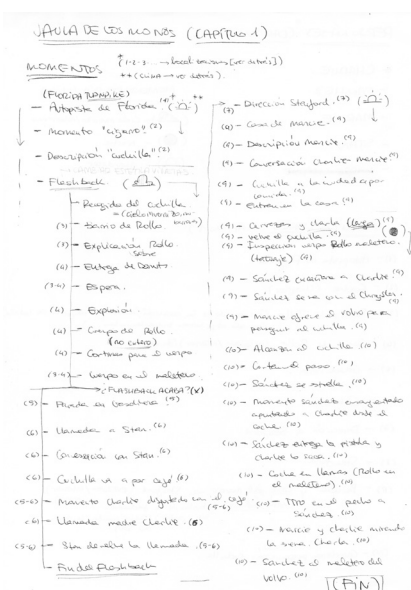 JAULA DE LOS MONOS (CAPÍTULO 1)
MOMENTOS
(FLORIDA TURNPIKE)
— Autopista de Florida.
— Momento "cigarro" (2)
— Descripción "cuchilla" (2)
— Flashback
— Recogida del cuchilla
(3) — barrio de Rollo
(3) — Explicación Rollo.
sobre
(4) — Entrega de Donuts
(3-4) — Espera.
(4) — Explosión.
(4) — Cuerpo de Rollo.
(no entero)
(4) — Cortinas para el cuerpo
(3-4) — Cuerpo en el maletero
¿FLASHBACK ACABA?
(5) — Parada en (5)
(6) — Llamada a Stan. (6)
(6) — Conversación con Stan. (6)
(6) — Cuchilla va a por café (6)
(5-6) — Momento Charlie con el café (5-6)
(6) — Llamada madre Charlie. (6)
(5-6) — Stan devuelve la llamada. (5-6)
— Fin del Flashback
(7) — Dirección (7)
(9) — Casa de Marcie. (9)
(9) — Descripción Marcie. (9)
(9) — Conversación Charlie Marcie (9)
(9) — Cuchilla y la ciudad a por
comida. (9)
(9) — Entran en la casa (9)
(9) — y charla (larga) (9)
(9) — vuelve el cuchilla. (9)
(9) — Inspección cuerpo Rollo maletero.
(tatuaje) (9)
(9) — Sánchez a Charlie. (9)
(9) — Sánchez se va con el Chrysler.
(9)
(9) — Marcie ofrece el volvo para
perseguir al cuchilla. (9)
(10) — Alcanzan al cuchilla. (10)
(10) — Cortan el paso. (10)
(10) — Sánchez se estrella. (10)
(10) — Momento Sánchez ensangrentado
apuntando a Charlie desde el
coche (10)
(10) — Sánchez entrega la pistola y
Charlie lo saca. (10)
(10) — Coche en llamas (Rollo en
el maletero). (10)
(10) — Tiro en el pecho a
Sánchez (10)
(10) — Marcie y Charlie mirando
la escena. Charla. (10)
(10) — Sánchez al maletero del
volvo. (10)
(FIN)